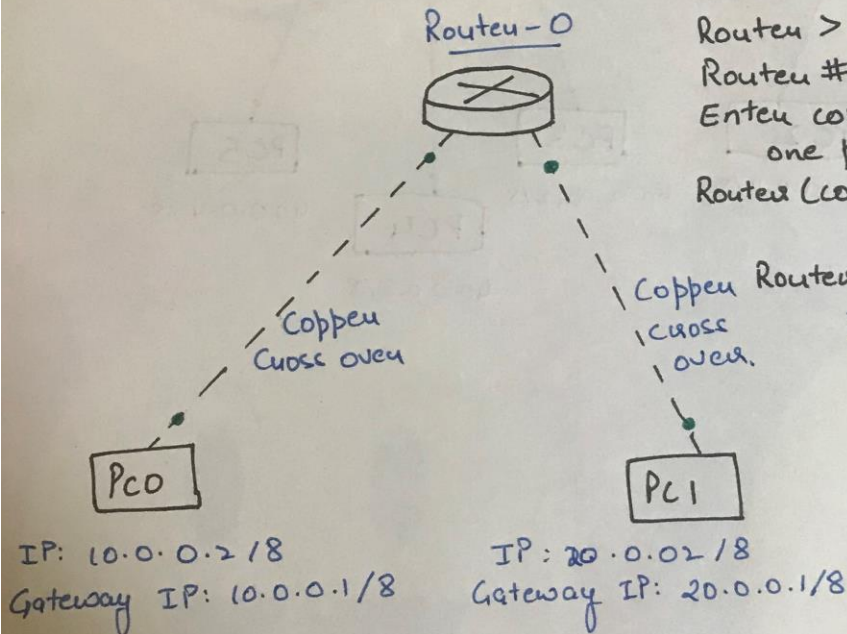 Router-0
Router >
Router #
Enter co
one
Router (co
Router
Copper
Cross over
Copper
Cross
over.
PC0
PC1
IP: 10.0.0.2/8
Gateway IP: 10.0.0.1/8
IP: 20.0.02/8
Gateway IP: 20.0.0.1/8